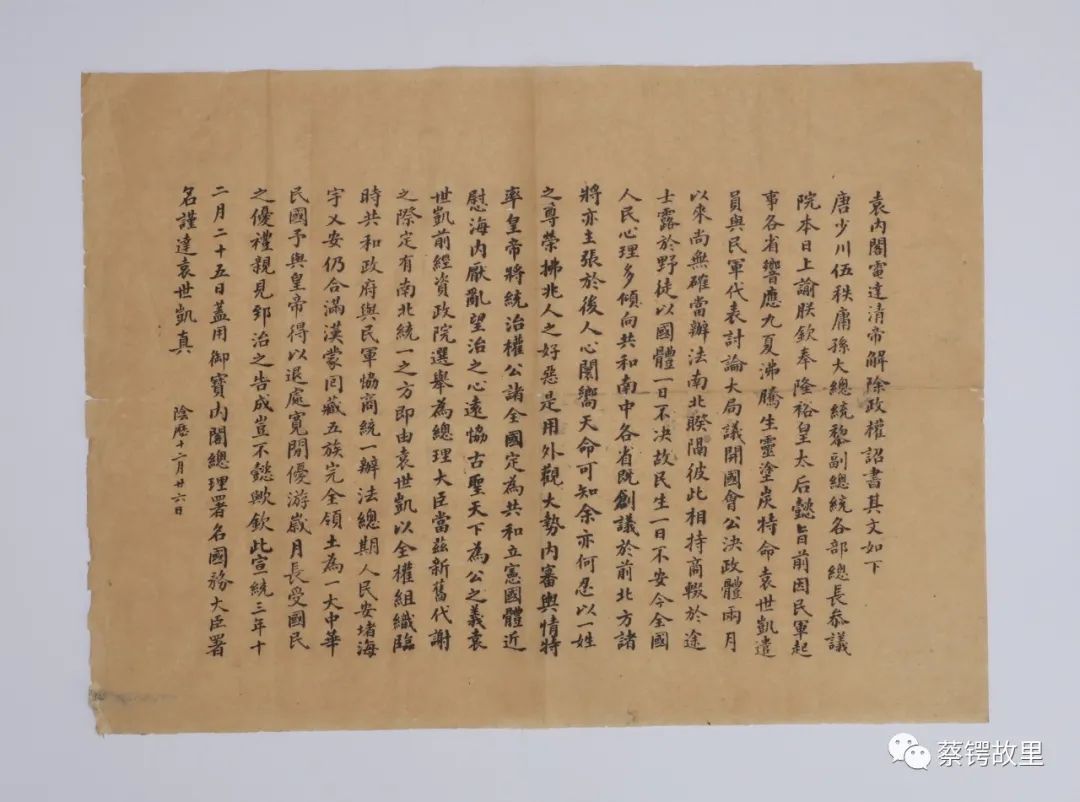 袁內閣電達清帝解除政權詔書其文如下
唐少川伍秩庸孫大總統黎副總統各部總長叅議
院本日上諭朕欽奉隆裕皇太后懿旨前因民軍起
事各省響應九夏沸騰生靈塗炭特命袁世凱遣
員與民軍代表討論大局議開國會公決政體兩月
以來尚無確當辦法南北睽隔彼此相持商輟於途
士露於野徒以國體一日不決故民生一日不安今全國
人民心理多傾向共和南中各省旣創議於前北方諸
將亦主張於後人心闓嚮天命可知余亦何忍以一姓
之尊榮拂兆人之好惡是用外觀大勢內審輿情特
率皇帝將統治權公諸全國定為共和立憲國體近
慰海內厭亂望治之心遠恊古聖天下為公之義袁
世凱前經資政院選舉為總理大臣當茲新舊代謝
之際定有南北統一之方即由袁世凱以全權組織臨
時共和政府與民軍恊商統一辦法總期人民安堵海
宇乂安仍合滿漢蒙回藏五族完全領土為一大中華
民國予與皇帝得以退處寬閒優游歲月長受國民
之優禮親見郅治之告成豈不懿歟欽此宣統三年十
二月二十五日蓋用御寶內閣總理署名國務大臣署
名謹達袁世凱真
陰曆十二月廿六日
蔡锷故里